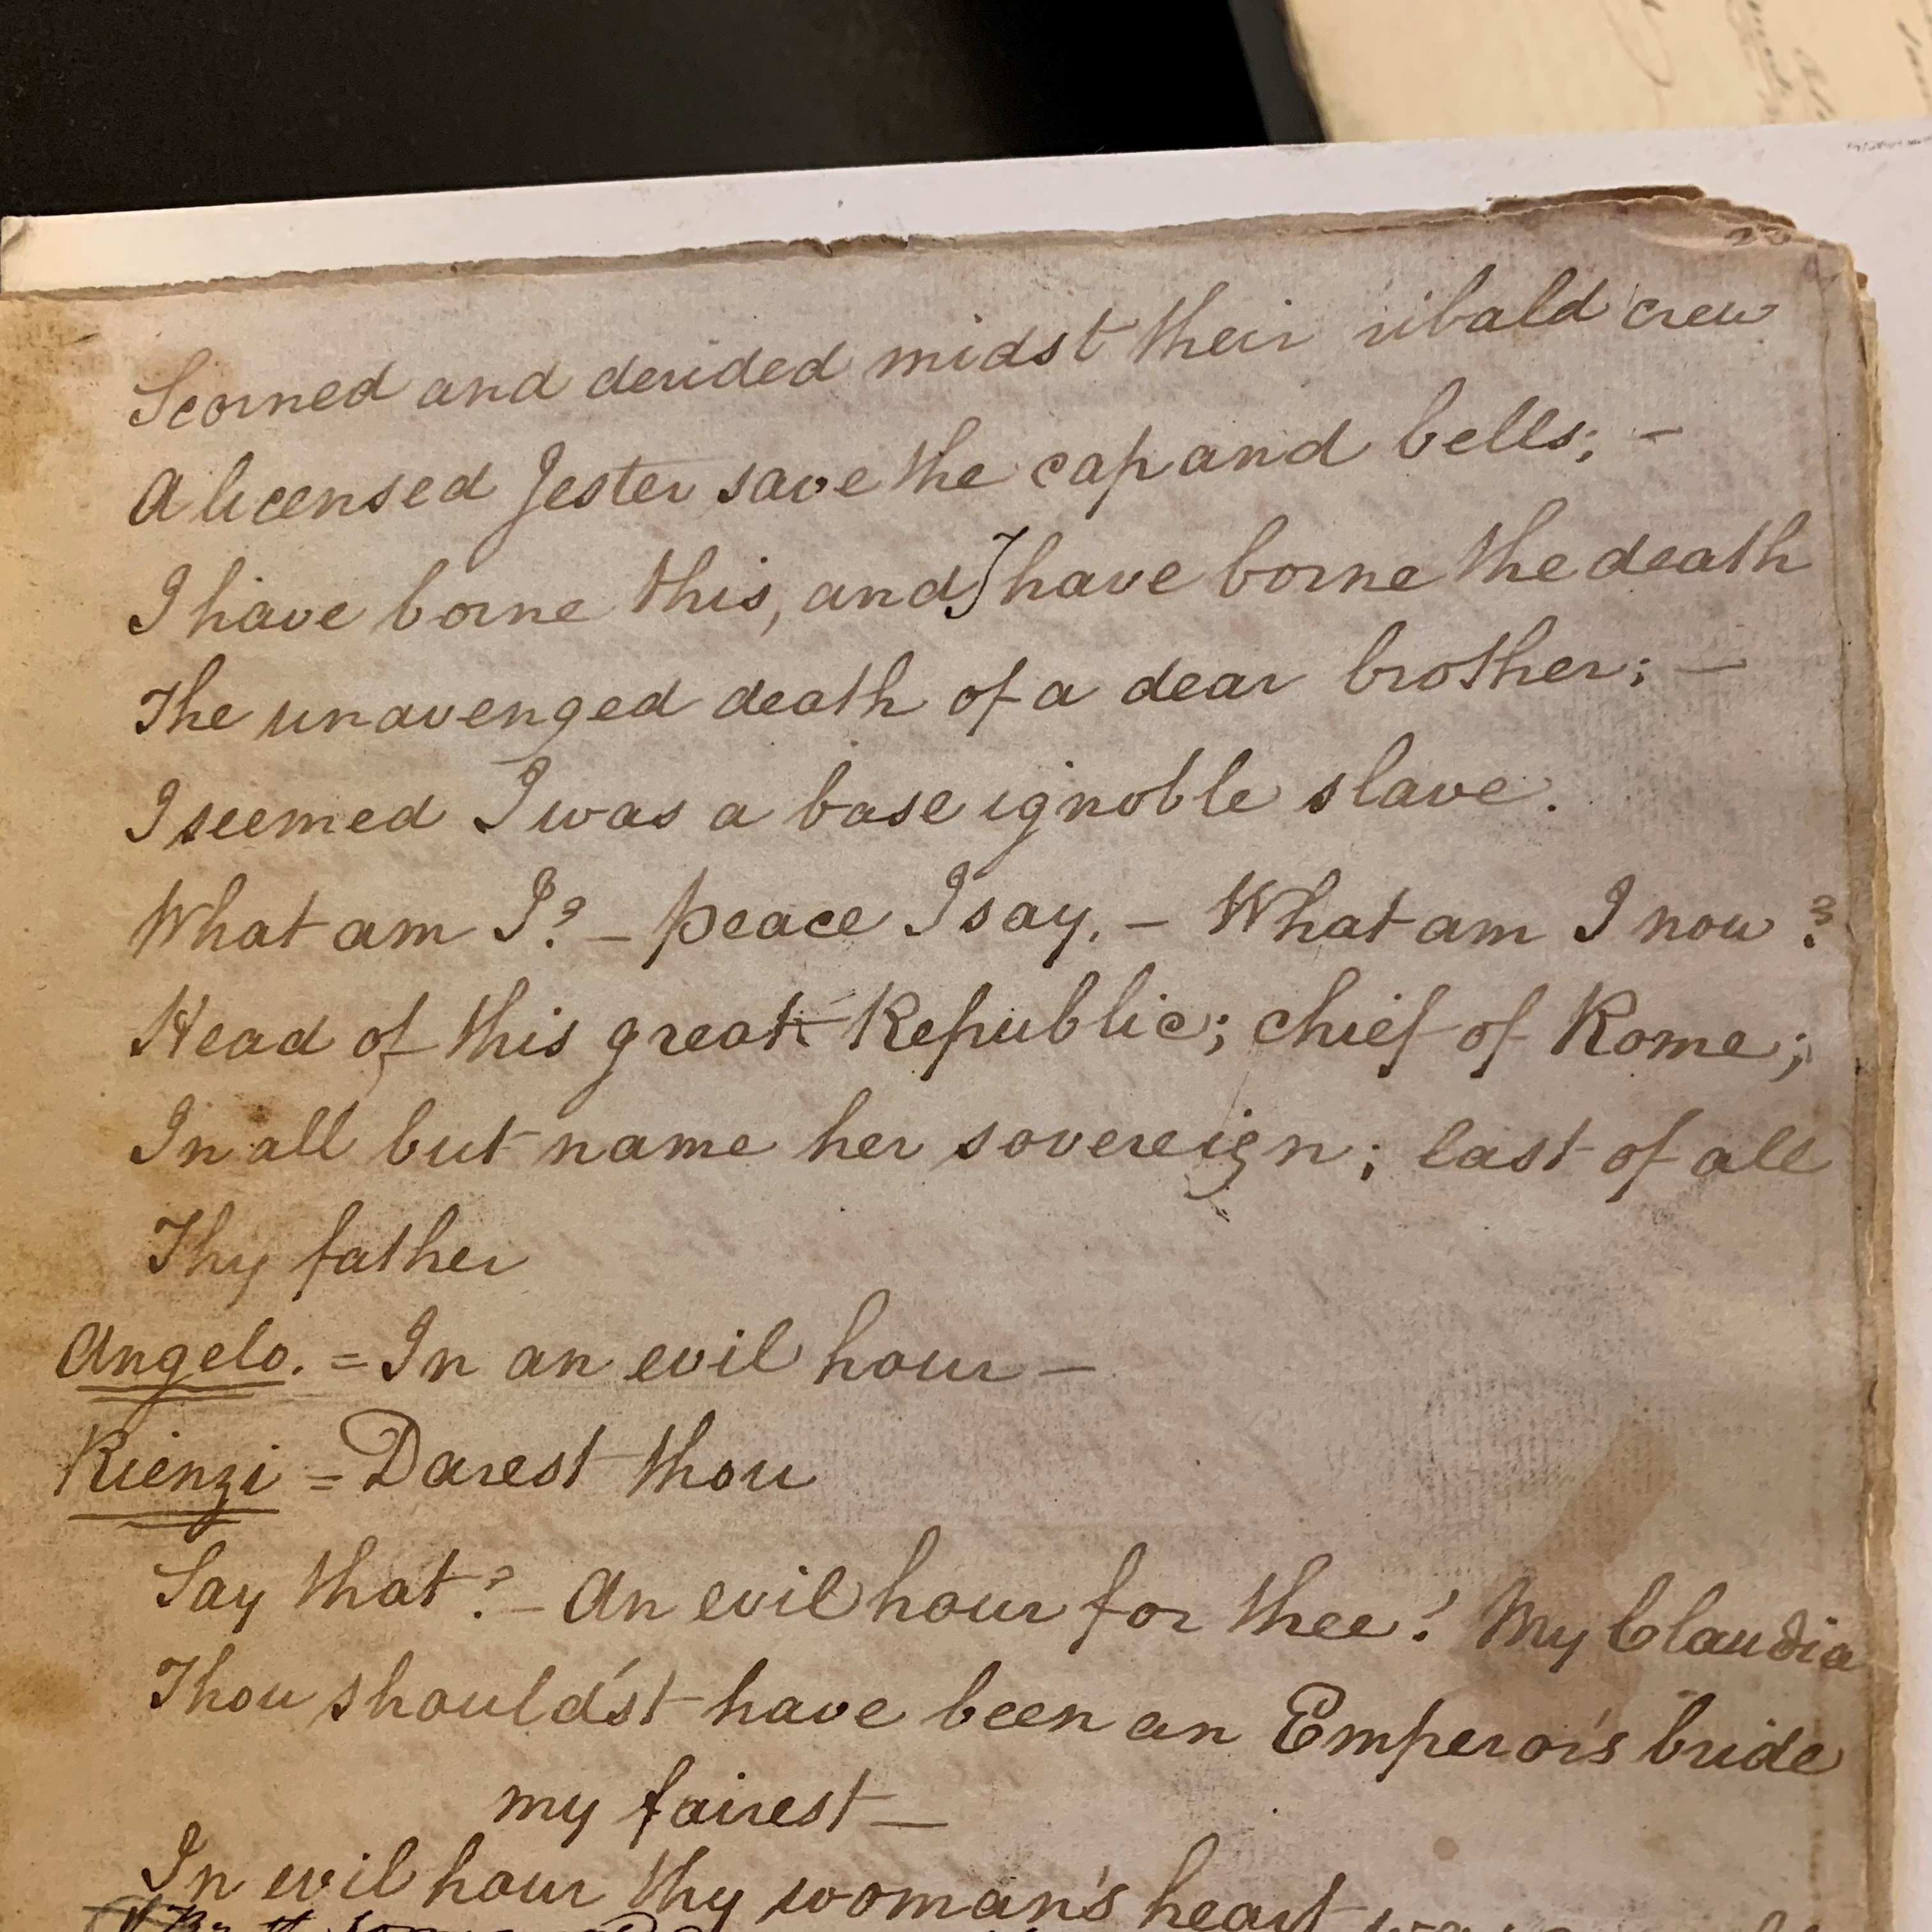 22
Scorned and derided midst their ribald crew
A licensed Jester save the cap and bells; -
I have borne this, and I have borne the death
The unavenged death of a dear brother; -
I seemed I was a base ignoble slave.
What am I? - peace I say. - What am I now?
Head of this great Republic; chief of Rome;
In all but name her sovereign; last of all
Thy father
Angelo. = In an evil hour -
Rienzi = Darest thou
Say that? - An evil hour for thee! My Claudia
Thou should'st have been an Emperor's bride
my fairest -
In evil hour thy woman's heart was